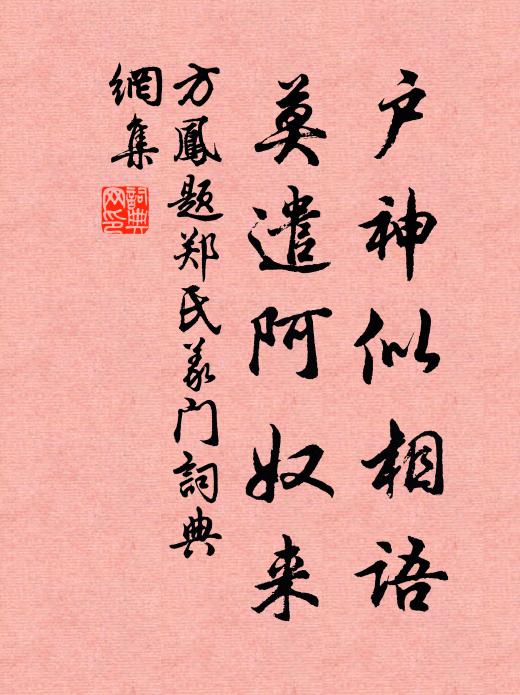 户神似相语
莫遣阿奴来
方鳳题郑氏义门詞典
網集
詞典
网印